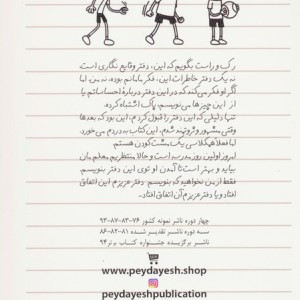 رک و راست بگویم که این، دفتر وقایع نگاری است
نه یک دفتر خاطرات. این، فکر مامانم بوده، نه من. اما
اگر او فکر می‌کند که در این دفتر درباره‌ی احساساتم یا
از این چیزها می‌نویسم، پاک اشتباه کرده.
تنها دلیلی که این دفتر را قبول کردم، این بود که بعدها
وقتی مشهور و ثروتمند شدم، این کتاب به دردم می‌خورد.
اما فعلاً کلاسی یک مشت کودن هستم.
امروز اولین روز مدرسه است و حالا منتظریم معلم‌مان
بیاید و بهتر است تا آمدن او توی این دفتر بنویسم.
فقط از من نخواهید که بنویسم «دفتر عزیزم این اتفاق
افتاد و یا دفتر عزیزم آن اتفاق افتاد.»
چهار دوره ناشر نمونه کشور ۷۶-۸۳-۸۷-۹۳
سه دوره ناشر تقدیر شده ۸۱-۸۲-۸۶
ناشر برگزیده جشنواره کتاب برتر ۹۴
www.peydayesh.shop
peydayeshpublication